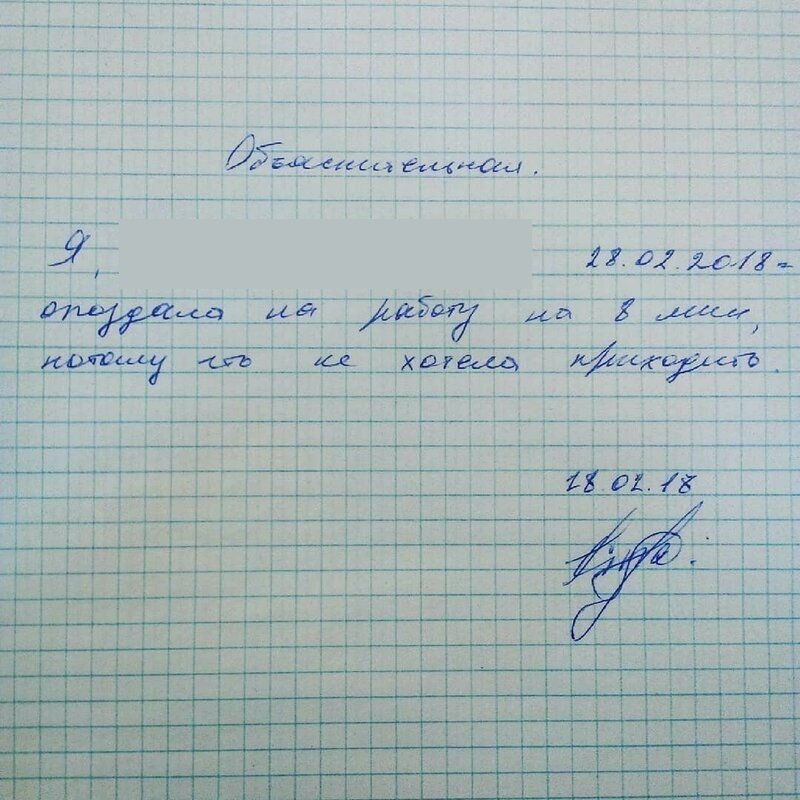 Объяснительная.
Я, 28.02.2018г
опоздала на работу на 8 мин,
потому что не хотела приходить.
28.02.18